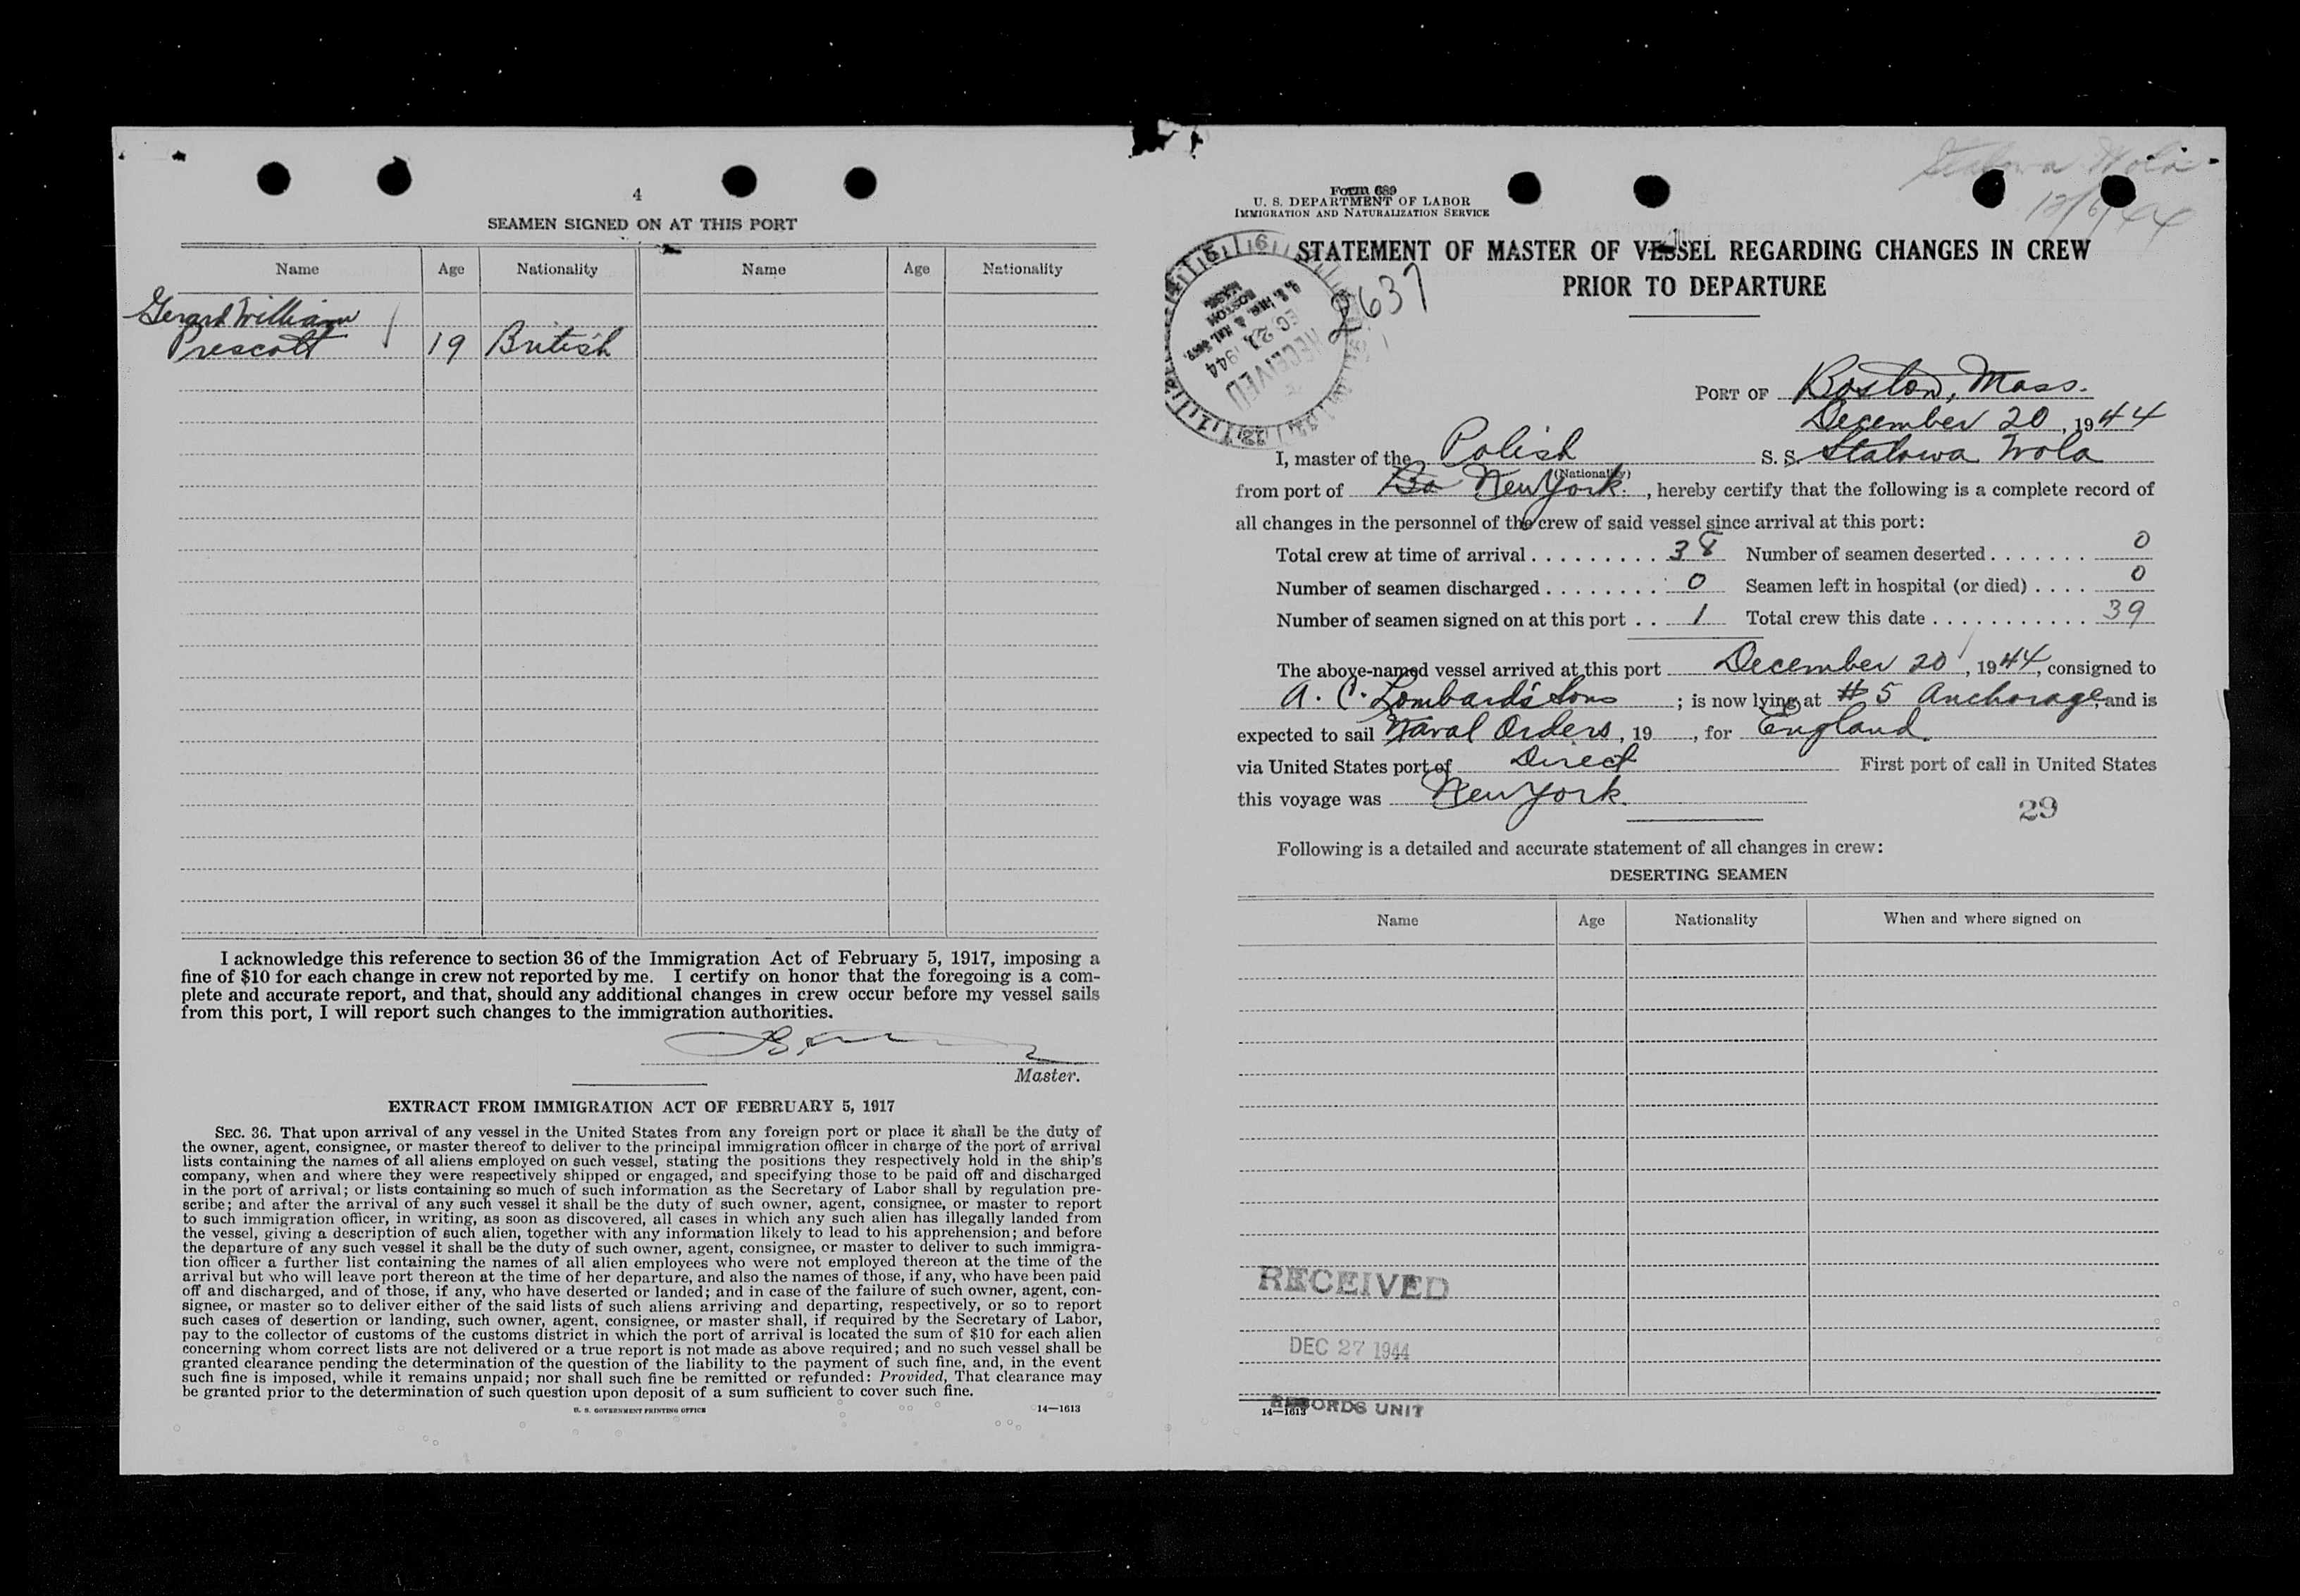 4
SEAMEN SIGNED ON AT THIS PORT
Name Age Nationality Name Age Nationality
Gerard William
Prescott 19 British
I acknowledge this reference to section 36 of the Immigration Act of February 5, 1917, imposing a
fine of $10 for each change in crew not reported by me. I certify on honor that the foregoing is a com-
plete and accurate report, and that, should any additional changes in crew occur before my vessel sails
from this port, I will report such changes to the immigration authorities.
Master.
EXTRACT FROM IMMIGRATION ACT OF FEBRUARY 5, 1917
SEC. 36. That upon arrival of any vessel in the United States from any foreign port or place it shall be the duty of
the owner, agent, consignee, or master thereof to deliver to the principal immigration officer in charge of the port of arrival
lists containing the names of all aliens employed on such vessel, stating the positions they respectively hold in the ship's
company, when and where they were respectively shipped or engaged, and specifying those to be paid off and discharged
in the port of arrival; or lists containing so much of such information as the Secretary of Labor shall by regulation pre-
scribe; and after the arrival of any such vessel it shall be the duty of such owner, agent, consignee, or master to report
to such immigration officer, in writing, as soon as discovered, all cases in which any such alien has illegally landed from
the vessel, giving a description of such alien, together with any information likely to lead to his apprehension; and before
the departure of any such vessel it shall be the duty of such owner, agent, consignee, or master to deliver to such immigra-
tion officer a further list containing the names of all alien employees who were not employed thereon at the time of the
arrival but who will leave port thereon at the time of her departure, and also the names of those, if any, who have been paid
off and discharged, and of those, if any, who have deserted or landed; and in case of the failure of such owner, agent, con-
signee, or master so to deliver either of the said lists of such aliens arriving and departing, respectively, or so to report
such cases of desertion or landing, such owner, agent, consignee, or master shall, if required by the Secretary of Labor,
pay to the collector of customs of the customs district in which the port of arrival is located the sum of $10 for each alien
concerning whom correct lists are not delivered or a true report is not made as above required; and no such vessel shall be
granted clearance pending the determination of the question of the liability to the payment of such fine, and, in the event
such fine is imposed, while it remains unpaid; nor shall such fine be remitted or refunded: Provided, That clearance may
be granted prior to the determination of such question upon deposit of a sum sufficient to cover such fine.
U. S. GOVERNMENT PRINTING OFFICE 14—1613
Stalowa Wola
12/6/44
Form 689
U. S. DEPARTMENT OF LABOR
IMMIGRATION AND NATURALIZATION SERVICE
STATEMENT OF MASTER OF VESSEL REGARDING CHANGES IN CREW
PRIOR TO DEPARTURE
2637
RECEIVED
BOSTON
MASS.
1944
PORT OF Boston, Mass.
December 20, 1944
I, master of the Polish S. S. Stalowa Wola
(Nationality)
from port of Bo New York., hereby certify that the following is a complete record of
all changes in the personnel of the crew of said vessel since arrival at this port:
Total crew at time of arrival . . . . . . . . . 38 Number of seamen deserted . . . . . . . 0
Number of seamen discharged . . . . . . . . 0 Seamen left in hospital (or died) . . . . 0
Number of seamen signed on at this port . . 1 Total crew this date . . . . . . . . . . . 39
The above-named vessel arrived at this port December 20, 1944, consigned to
A. C. Lombard's Sons ; is now lying at # 5 Anchorage and is
expected to sail Naval Orders, 19 , for England.
via United States port of Direct First port of call in United States
this voyage was New York.
29
Following is a detailed and accurate statement of all changes in crew:
DESERTING SEAMEN
Name Age Nationality When and where signed on
RECEIVED
DEC 27 1944
RECORDS UNIT
14—1613